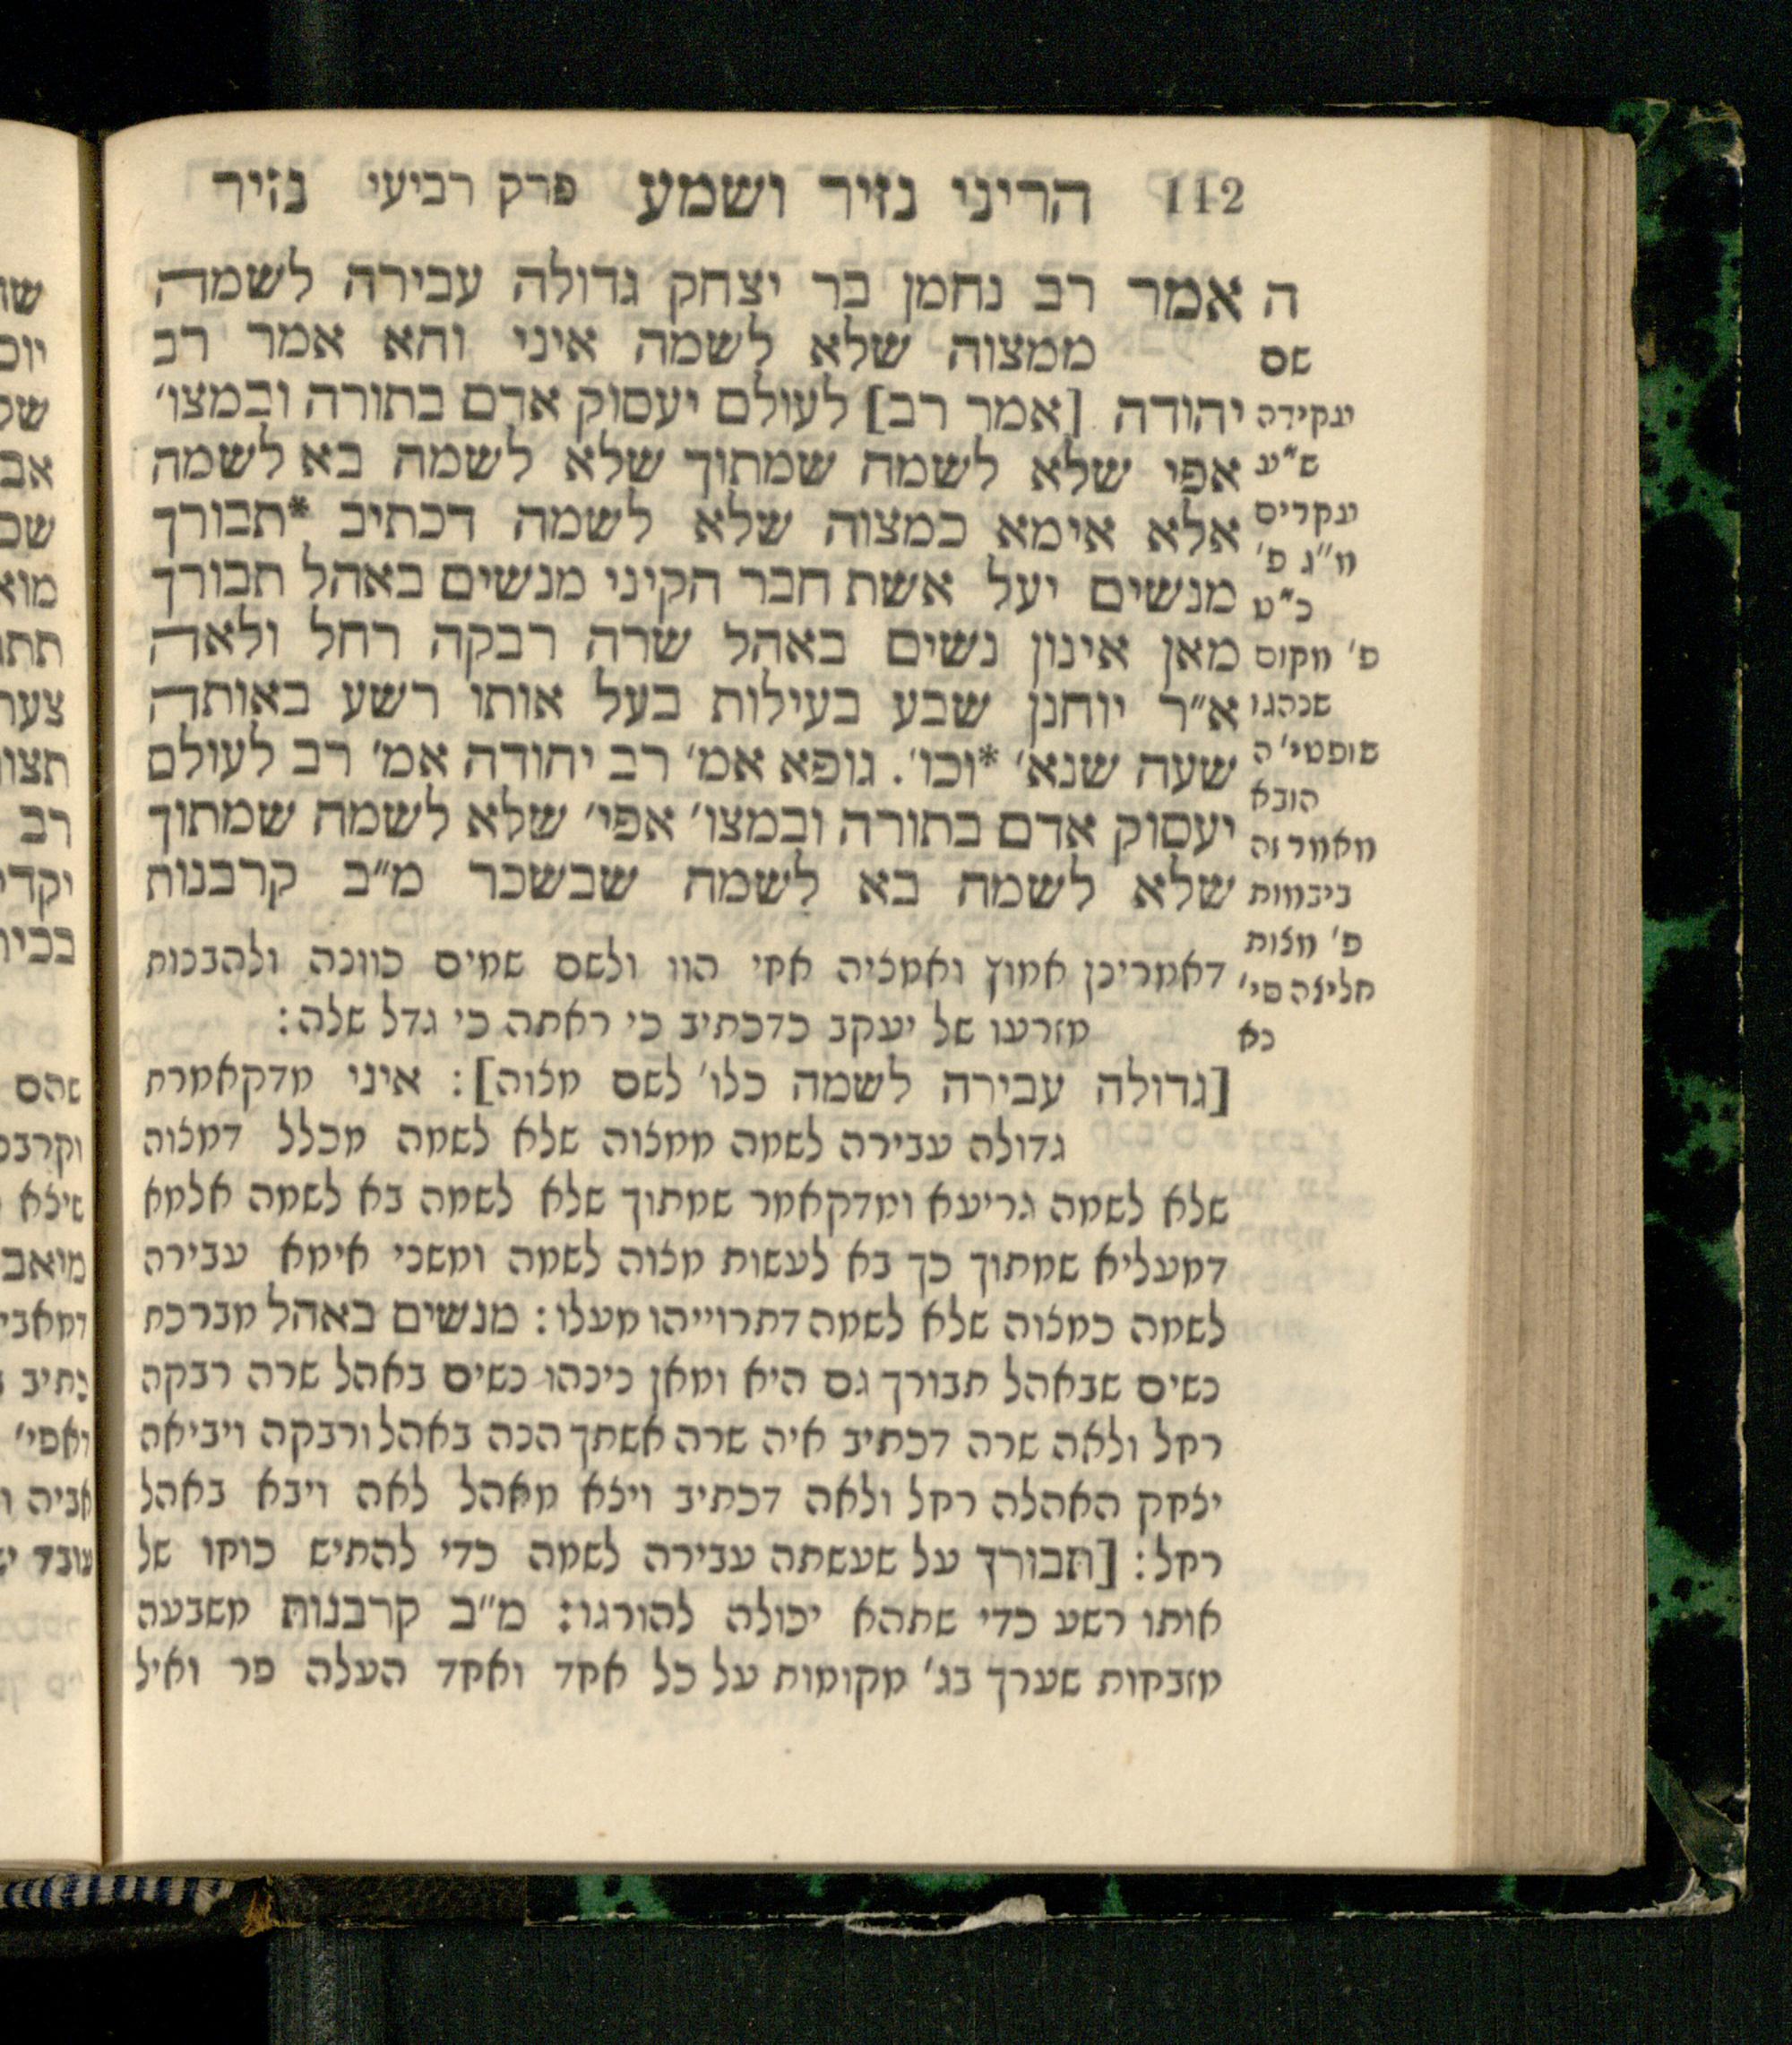 112 הריני נזיר ושמע פרק רביעי נזיר
ה אמר רב נחמן בר יצחק גדולה עבירה לשמה
ממצוה שלא לשמה איני והא אמר רב
יהודה [אמר רב] לעולם יעסוק אדם בתורה ובמצו׳
אפי שלא לשמה שמתוך שלא לשמה בא לשמה
אלא אימא כמצוה שלא לשמה דכתיב *תבורך
מנשים יעל אשת חבר הקיני מנשים באהל תבורך
מאן אינון נשים באהל שרה רבקה רחל ולאה
א״ר יוחנן שבע בעילות בעל אותו רשע באותה
שעה שנא׳ *וכו׳. גופא אמ׳ רב יהודה אמ׳ רב לעולם
יעסוק אדם בתורה ובמצו׳ אפי׳ שלא לשמה שמתוך
שלא לשמה בא לשמה שבשכר מ״ב קרבנות
שם
עקידה
ש״ע
עקרים
מ״ג פ׳
כ״ט
פ׳ מקום
שנהגו
שופטי׳ ה
הובא
מאמר זה
ביבמות
פ׳ מצות
חליצה סי׳
כא
דאמריכן אמוץ ואמציה אחי הוו ולשם שמים כוונה ולהבנות
מזרעו של יעקב כדכתיב כי ראתה כי גדל שלה:
[גדולה עבירה לשמה כלו׳ לשם מצוה]: איני מדקאמרת
גדולה עבירה לשמה ממצוה שלא לשמה מכלל דמצוה
שלא לשמה גריעא ומדקאמר שמתוך שלא לשמה בא לשמה אלמא
דמעליא שמתוך כך בא לעשות מצוה לשמה ומשני אימא עבירה
לשמה כמצוה שלא לשמה דתרוייהו מעלו: מנשים באהל מברכת
נשים שבאהל תבורך גם היא ומאן נינהו נשים באהל שרה רבקה
רחל ולאה שרה דכתיב איה שרה אשתך הנה באהל ורבקה ויביאה
יצחק האהלה רחל ולאה דכתיב ויצא מאהל לאה ויבא באהל
רחל: [תבורך על שעשתה עבירה לשמה כדי להתיש כוחו של
אותו רשע כדי שתהא יכולה להורגו: מ״ב קרבנות משבעה
מזבחות שערך בג׳ מקומות על כל אחד ואחד העלה פר ואיל